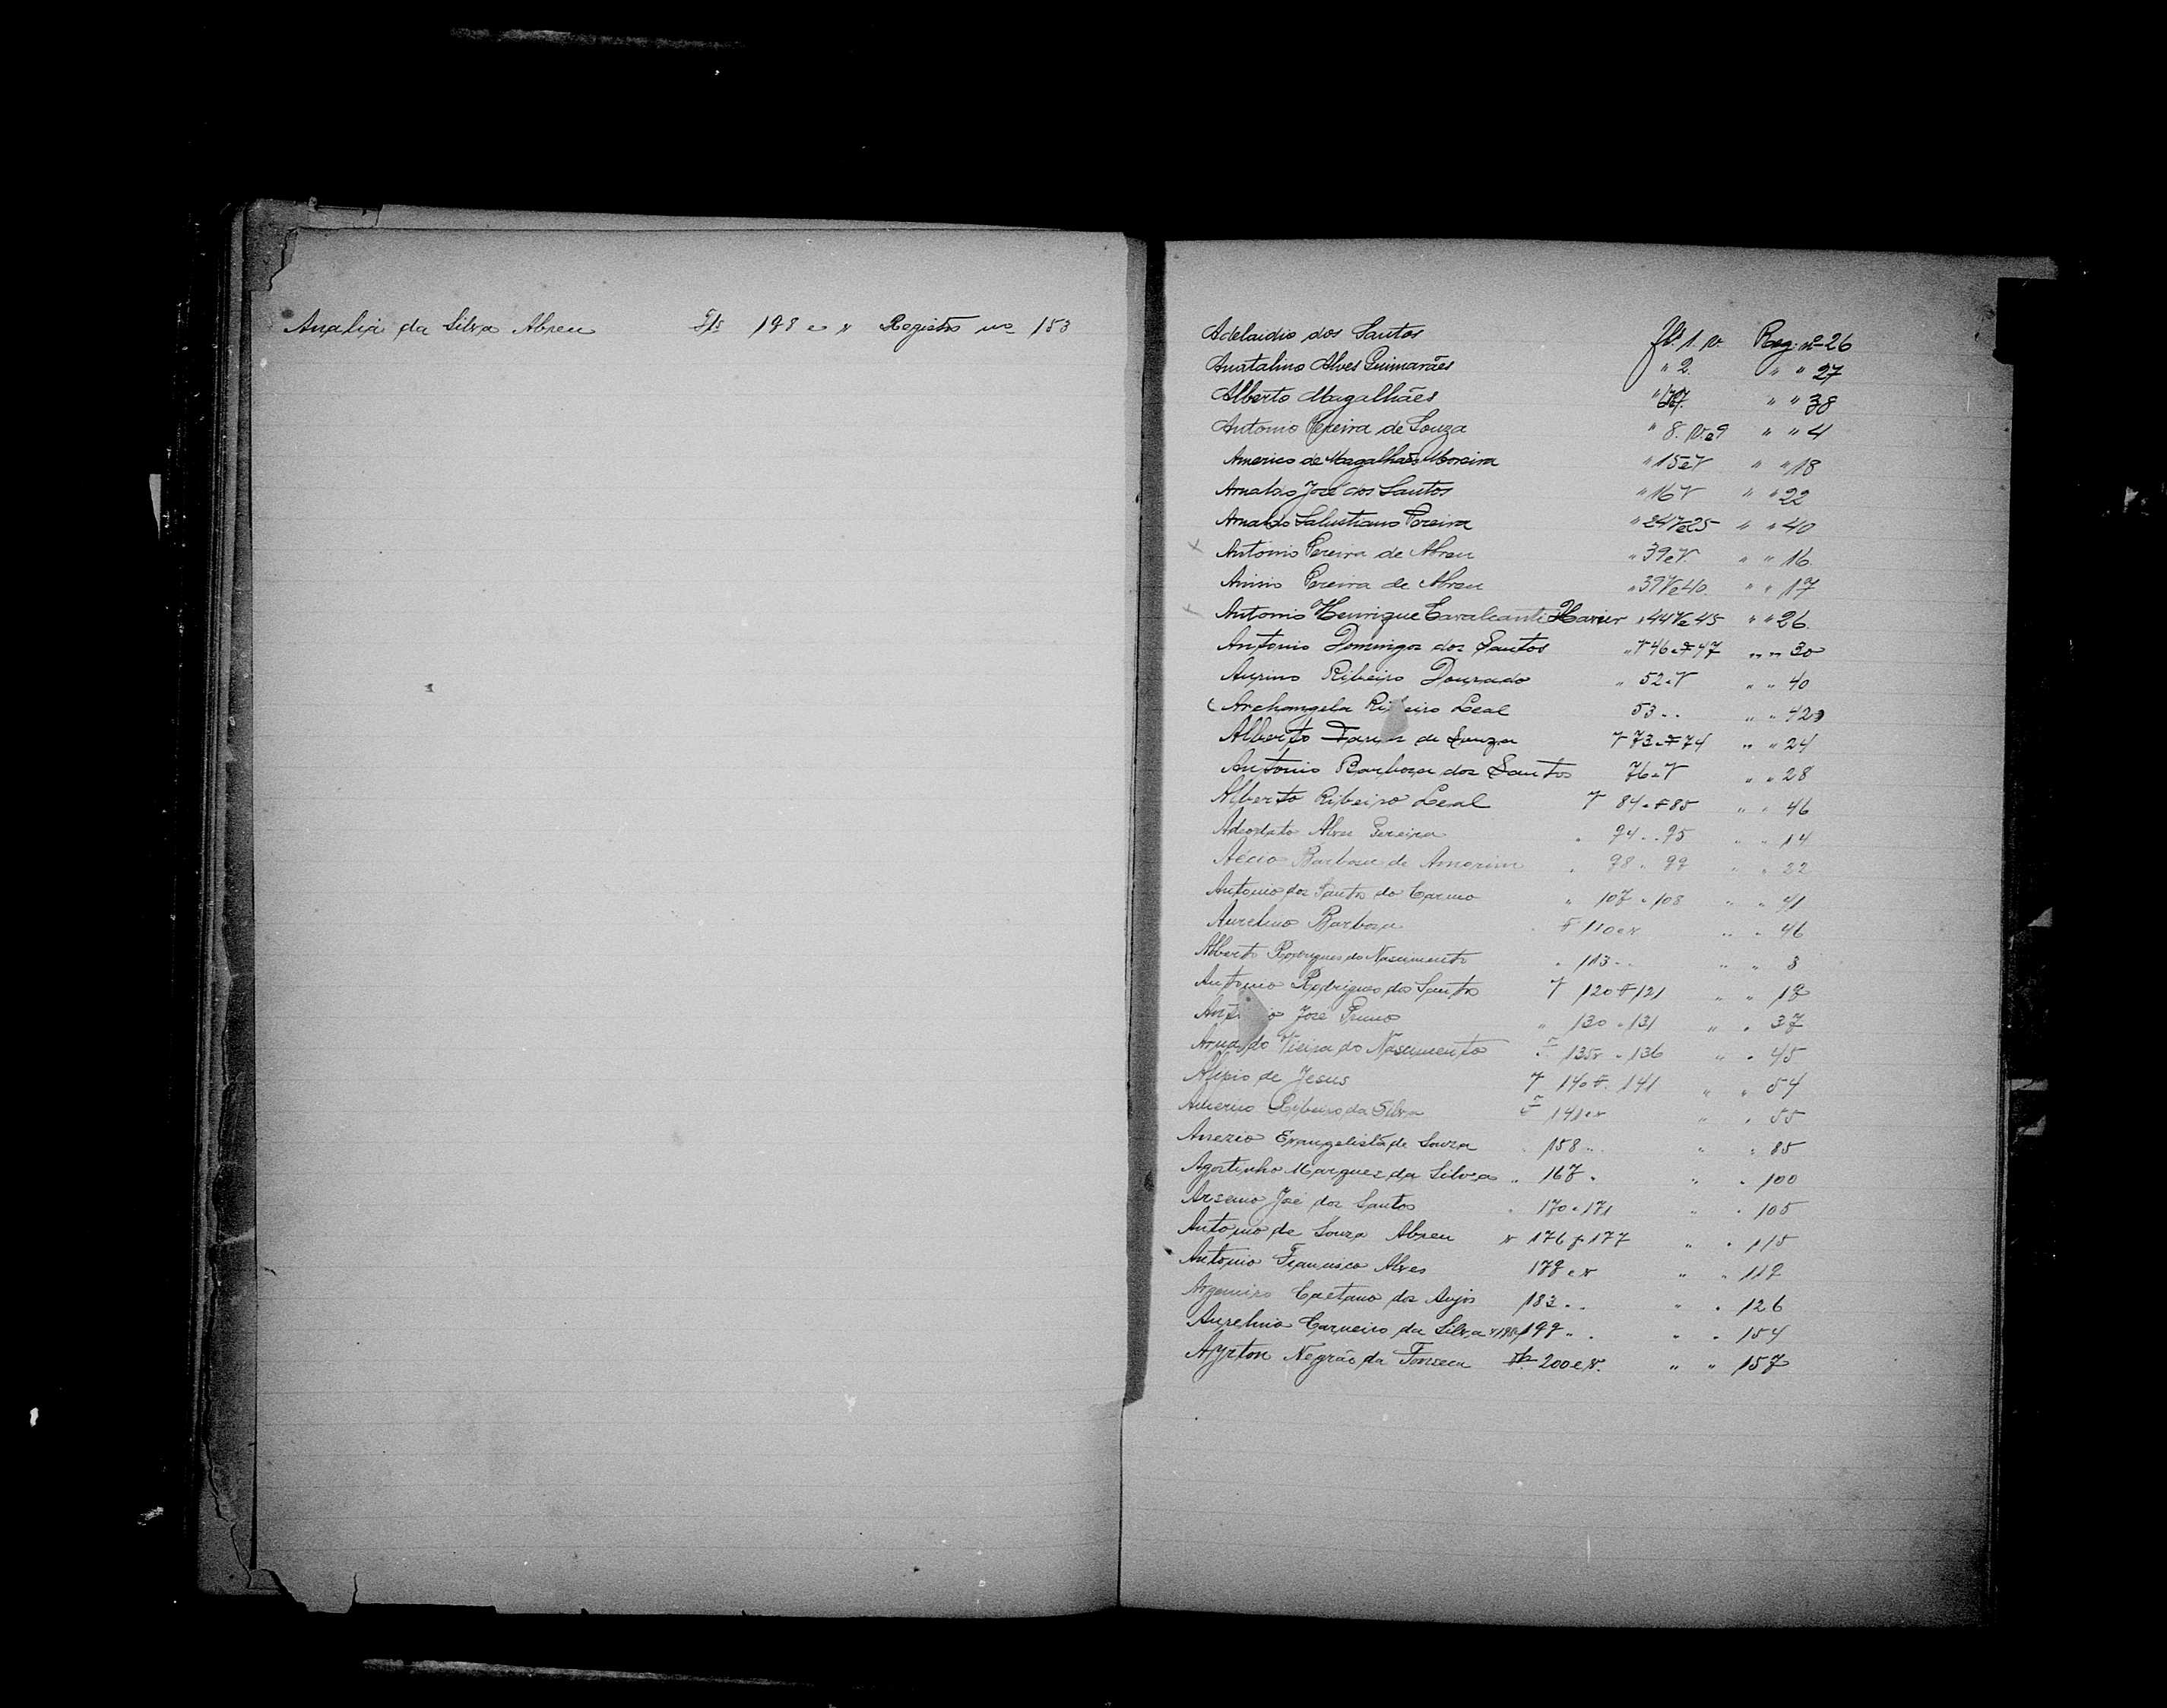 Analia da Silva Abreu Fls 198 e v Registro nº 153
Adelaidio dos Santos fl. 1. v. Reg. nº 26
Anatalino Alves Guimarães " 2. " " 27
Alberto Magalhães " " " 38
Antonio Pereira de Souza " 8. v. e 9 " " 4
Americo de Magalhães Moreira " 15 e V " " 18
Arnaldo José dos Santos " 16 V " " 22
Arnaldo Salustiano Pereira " 24 V e 25 " " 40
Antonio Pereira de Abreu " 39 e V. " " 16
Anisio Pereira de Abreu " 39 V e 40. " " 17
Antonio Henrique Cavalcanti Xavier " 44 V e 45 " " 26.
Antonio Domingos dos Santos " V 46 e F 47 " " 30
Aurino Ribeiro Dourado " 52 e V " " 40
Archangela Ribeiro Leal 53 " " " " 42
Alberto de Souza V 73 e F 74 " " 24
Antonio Barboza dos Santos 76 e V " " 28
Alberto Ribeiro Leal V 84 e F 85 " " 46
Adeodato Alves Pereira " 94 " 95 " " 14
Aécio Barbosa de Amorim " 98 " 99 " " 22
Antonio dos Santos do Carmo " 107 " 108 " " 41
Aurelino Barbosa F 110 e v " " 46
Alberto Rodrigues do Nascimento " 113 " " " " 3
Antonio Rodrigues dos Santos V 120 F 121 " " 19
Antonio José Primo " 130 " 131 " " 37
Arnaldo Vieira do Nascimento F 135v " 136 " " 45
Alipio de Jesus V 140 F. 141 " " 54
Americo Ribeiro da Silva F 141 e v " " 55
Anezio Evangelista de Souza " 158 " " " " 85
Agostinho Marques da Silva " 167 " " " 100
Arsenio José dos Santos " 170 " 171 " " 105
Antonio de Souza Abreu v 176 f 177 " " 115
Antonio Francisco Alves 179 e v " " 119
Argemiro Caetano dos Anjos 183 " " " " 126
Aurelino Carneiro da Silva 199 " " " " 154
Ayrton Negrão da Fonseca fls. 200 e v. " " 157